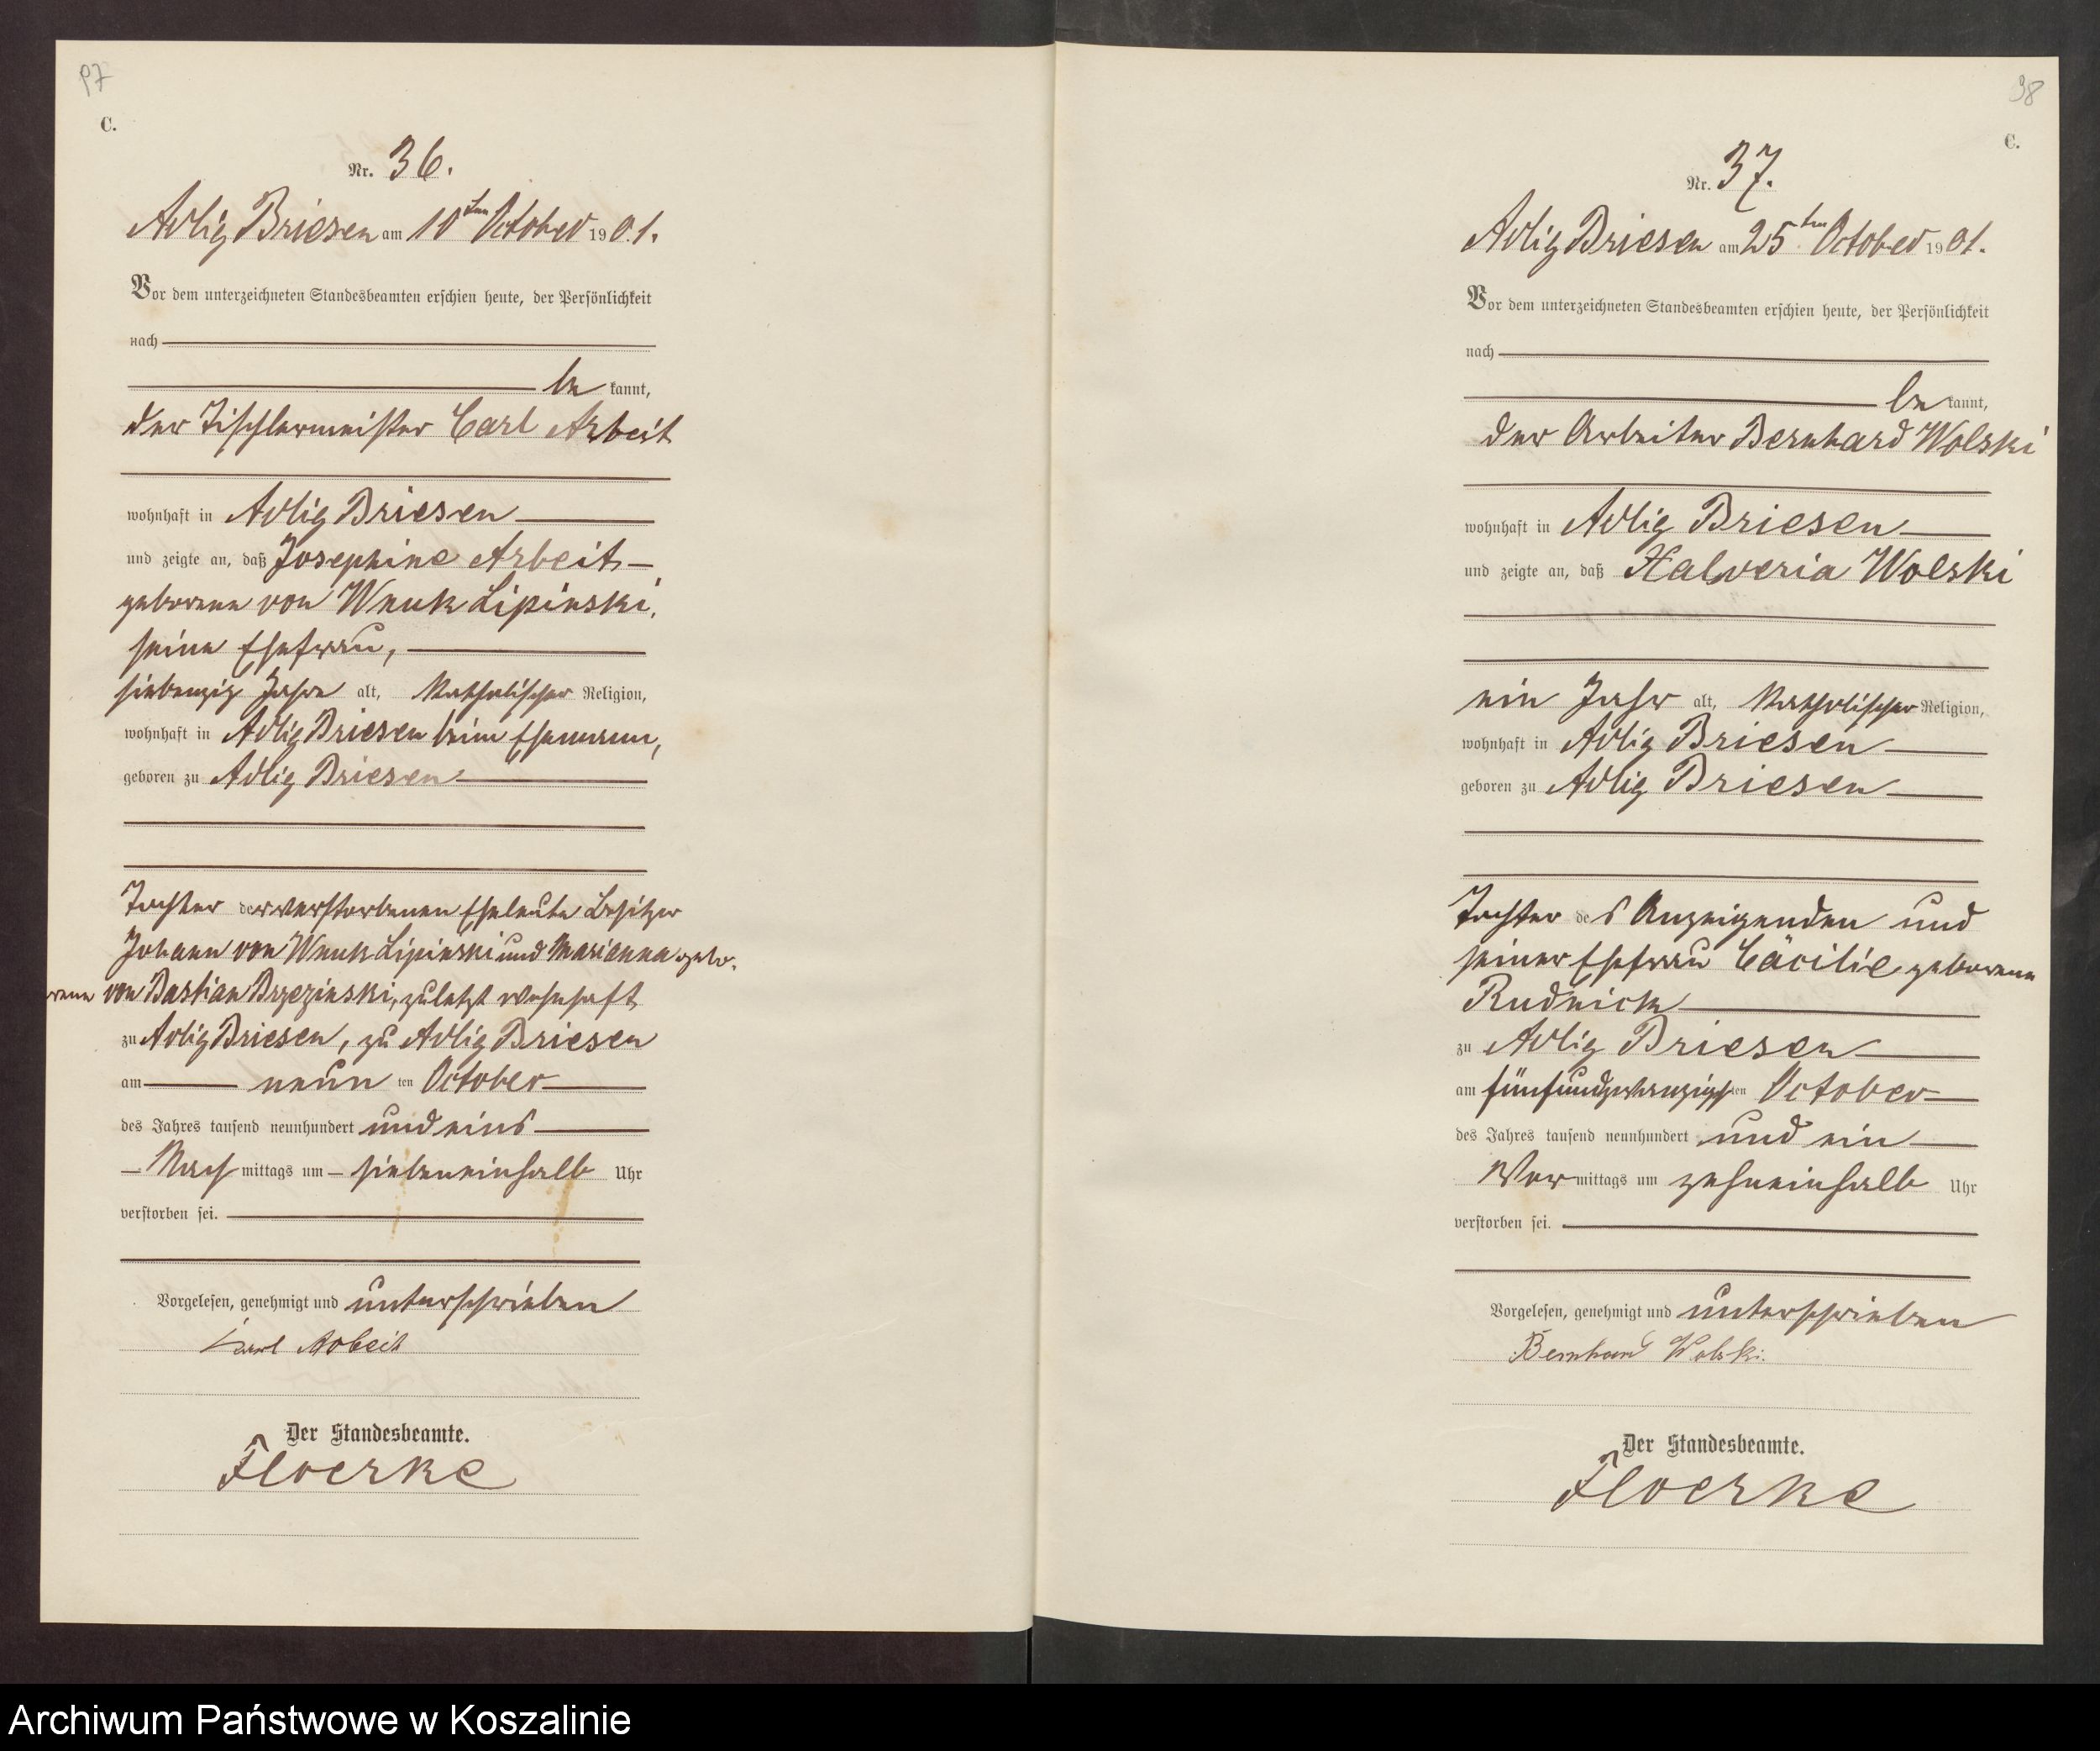 97
C.
Nr. 36.
Adlig Briesen am 10ten October 1901.
Vor dem unterzeichneten Standesbeamten erschien heute, der Persönlichkeit
nach
be kannt,
der Tischlermeister Carl Arbeit
wohnhaft in Adlig Briesen
und zeigte an, daß Josephine Arbeit
geborene von Wnuk Lipinski,
seine Ehefrau,
siebenzig Jahre alt, katholischer Religion,
wohnhaft in Adlig Briesen beim Ehemann,
geboren zu Adlig Briesen
Tochter der verstorbenen Eheleute Besitzer
Johann von Wnuk Lipinski und Marianna gebo-
rene von Bastian Brzezinski, zuletzt wohnhaft
zu Adlig Briesen, zu Adlig Briesen
am neun ten October
des Jahres tausend neunhundert und eins
Nach mittags um siebeneinhalb Uhr
verstorben sei.
Vorgelesen, genehmigt und unterschrieben
Karl Arbeit
Der Standesbeamte.
Floerke
98
C.
Nr. 37.
Adlig Briesen am 25ten October 1901.
Vor dem unterzeichneten Standesbeamten erschien heute, der Persönlichkeit
nach
be kannt,
der Arbeiter Bernhard Wolski
wohnhaft in Adlig Briesen
und zeigte an, daß Halveria Wolski
ein Jahr alt, katholischer Religion,
wohnhaft in Adlig Briesen
geboren zu Adlig Briesen
Tochter des Anzeigenden und
seiner Ehefrau Cäcilie geborene
Rudnick
zu Adlig Briesen
am fünfundzwanzigsten October
des Jahres tausend neunhundert und ein
Vor mittags um zehneinhalb Uhr
verstorben sei.
Vorgelesen, genehmigt und unterschrieben
Bernhard Wolski.
Der Standesbeamte.
Floerke
Archiwum Państwowe w Koszalinie